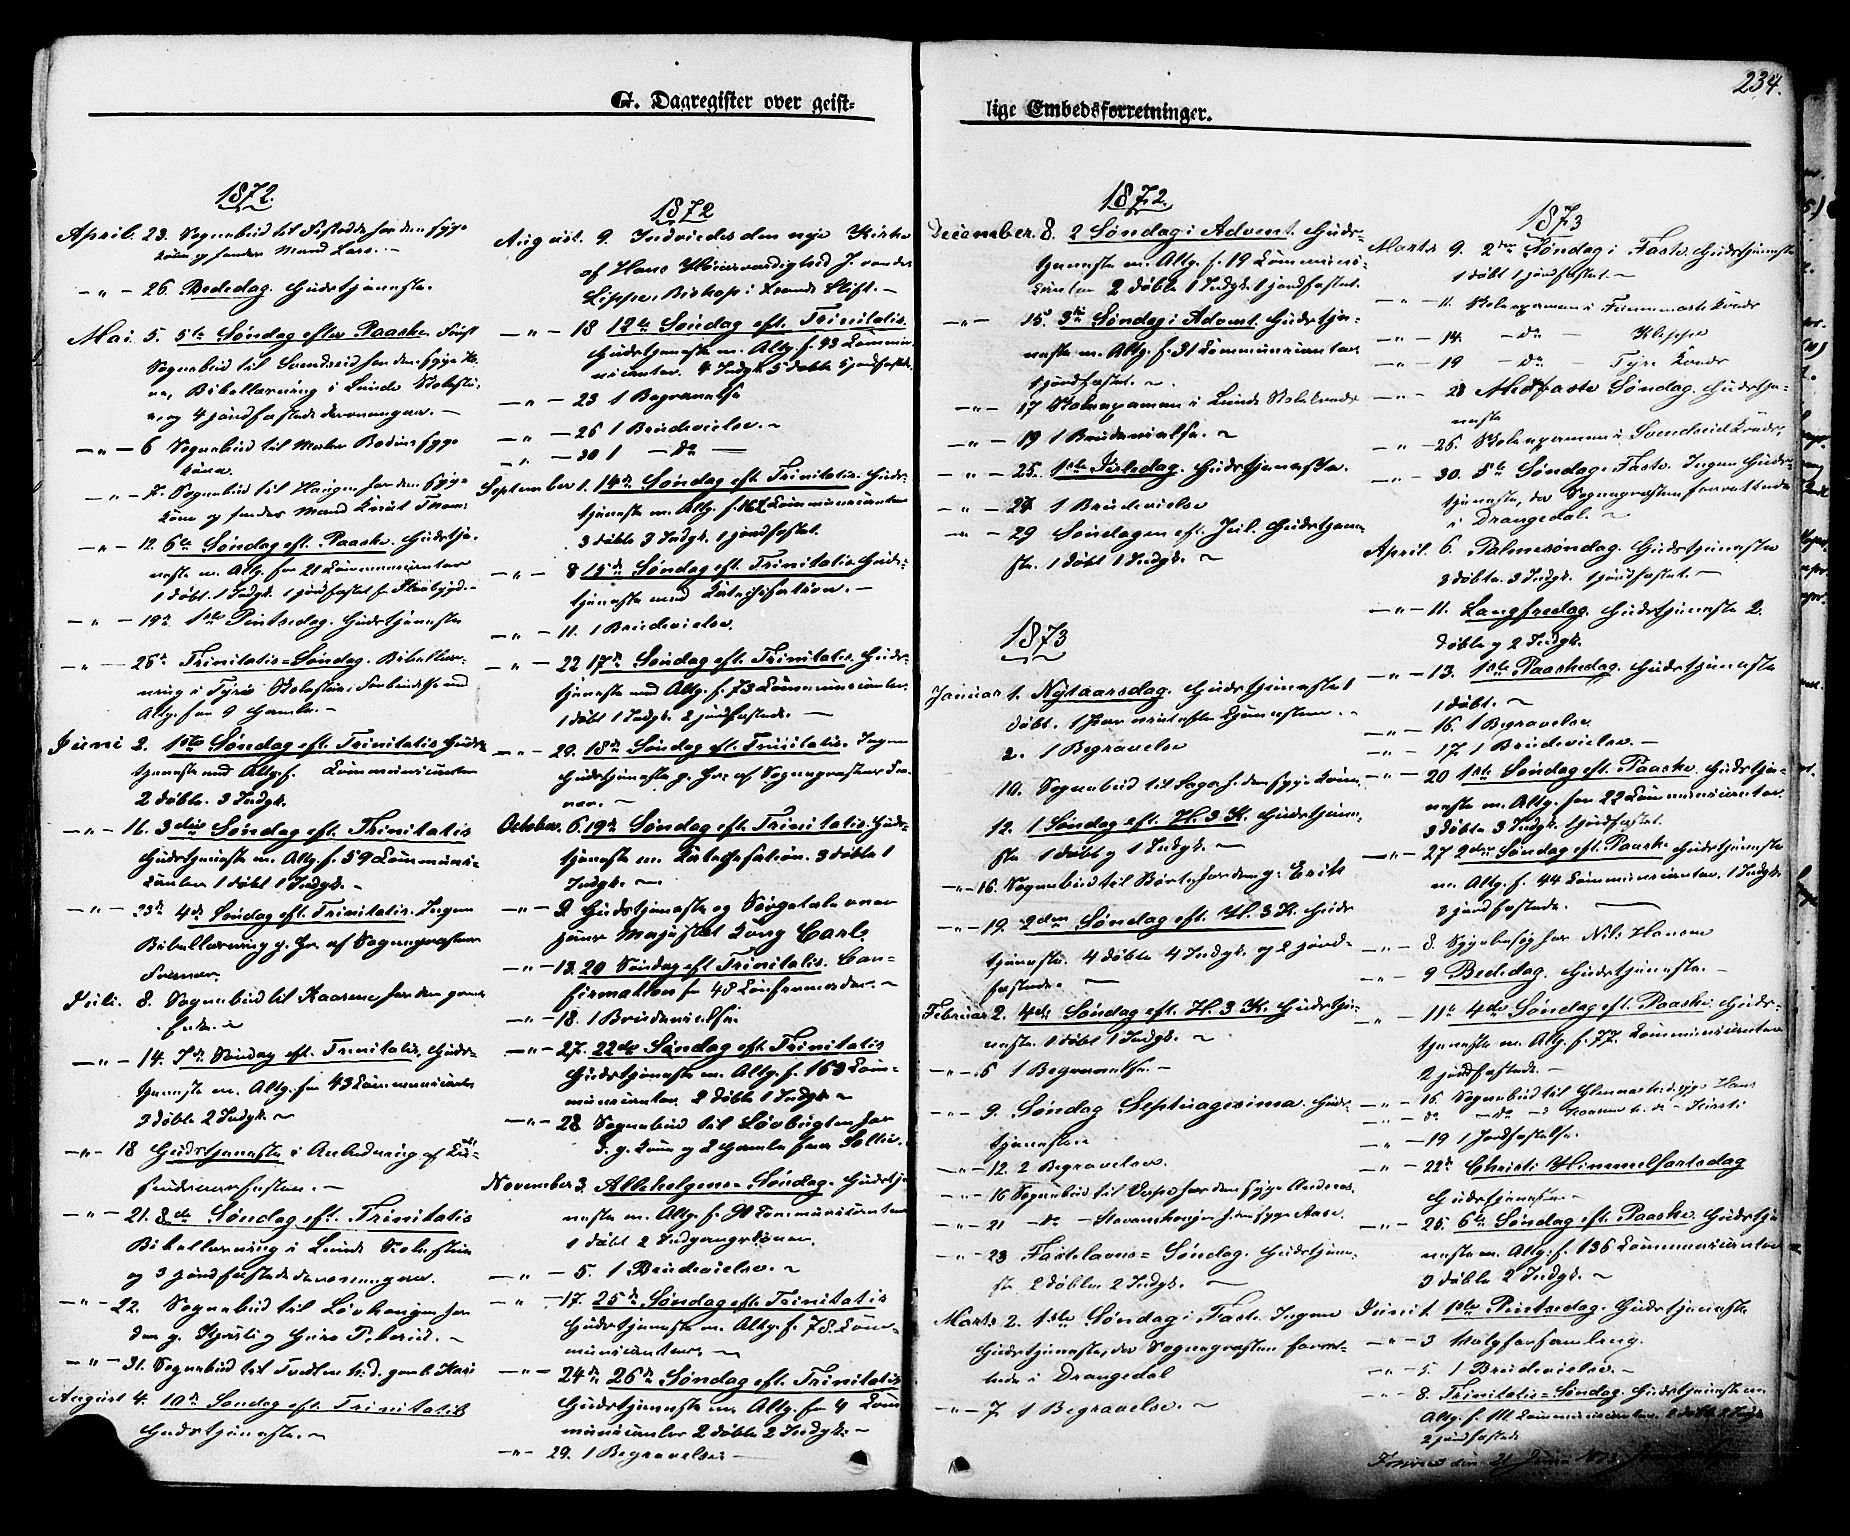 G. Dagregister over geist-
1872.
April. 23. Sognebud til
Kone og hendes Mand Lars. -
- " - 26. Bededag. Gudstjeneste.
Mai 5. 5te Søndag efter Paaske.
Sognebud til Svenseid for den syge
Bibellæsning i Lunde Skolestu-
og 4 jordfæstede
- " - 6 Sognebud til syge
Kone.
- " - 7. Sognebud til Haugen for den syge
Kone og hendes Mand Knut
- " - 12. 6te Søndag eft. Paaske. Gudstje-
neste m. Altg. for 21 Kommunicanter
1 døbt. 1 Indgk. 1 jordfæstet
- " - 19de 1ste Pintsedag. Gudstjeneste
- " - 26de Trinitatis=Søndag. Bibellæs-
ning i Tyri Skolestue i Forbindelse med
Altg. for 9 Gamle. -
Juni 2. 1ste Søndag eft. Trinitatis Guds-
tjeneste med Altg. f. Kommunicanter
2 døbte. 3 Indgk.
- " - 16. 3die Søndag eft. Trinitatis
Gudstjeneste m. Altg. f. 59 Kommuni-
canter 1 døbt 1 Indgk. -
- " - 23de 4de Søndag eft. Trinitatis. Ingen
Bibellæsning p. Gr. af Sognepræstens
Juli. 8. Sognebud til Kaasene for den gamle
- " - 14. 7de Søndag eft. Trinitatis. Guds-
tjeneste m. Altg. for 43 Kommunicanter
2 døbte 2 Indgk. ~
- " - 18 Gudstjeneste i Anledning af
- " - 21. 8de Søndag eft. Trinitatis
Bibellæsning i Lunde Skolestue
og 3 jordfæstede
- " - 22. Sognebud til Løvhaugen for
den g. Kjersti g Guro
- " - 31. Sognebud til gml. Kari
August 4. 10de Søndag eft. Trinitatis
Gudstjeneste. ~
1872
August. 9. Indviedes den nye Kirke
af Hans Høiærværdighed J. von der
Lippe, Biskop i Krsands Stift. -
- " - 18 12te Søndag eft. Trinitatis.
Gudstjeneste m. Altg. f. 93 Kommu-
nicanter. 4 Indgk. 5 døbte
- " - 23 1 Begravelse
- " - 26 1 Brudevielse. ~
- " - 30 1 - do -
September 1. 14de Søndag eft. Trinitatis. Guds-
tjeneste m. Altg. f. Kommunicanter
3 døbte 3 Indgk. 1 jordfæstet.
- " - 8 15de Søndag eft. Trinitatis Guds-
tjeneste med Katechisation. -
- " - 11. 1 Brudevielse.
- " - 22 17de Søndag eft. Trinitatis. Guds-
tjeneste med Altg. f. 73 Kommunicanter.
1 døbt 1 Indgk. 2 jordfæstede. -
- " - 29. 18de Søndag eft. Trinitatis. Ingen
Gudstjeneste p. Gr. af Sognepræstens
October. 6. 19de Søndag eft. Trinitatis. Guds-
tjeneste m. Katechesation. 3 døbte 1
Indgk. ~
- " - 9 Gudstjeneste og Sørgetale over
Majestet Kong Carl.
- " - 13. 20 Søndag eft. Trinitatis. Con-
firmation for 48 Konfirmander. -
- " - 18. 1 Brudevielse.
- " - 27. 22de Søndag eft. Trinitatis
Gudstjeneste m. Altg. f. 169 Kom-
municanter. 2 døbte 1 Indgk. ~
- " - 28 Sognebud til Løvbugten for
d. g. Kone og 2 Gamle paa
November 3. Allehelgens=Søndag. Gudstje-
neste m. Altg. f. Kommunicanter
1 døbt 2 Indgangskoner.
- " - 5. 1 Brudevielse. ~
- " - 17. 25de Søndag eft. Trinitatis
Gudstjeneste m. Altg. f. 78 Kom-
municanter. ~
- " - 24de 26de Søndag eft. Trinitatis
Gudstjeneste m. Altg. for 4 Kom-
municanter 2 døbte 2 Indgk. -
- " - 29. 1 Begravelse -
234.
lige Embedsforretninger.
1872.
December. 8. 2 Søndag i Advent. Guds-
tjeneste m. Altg. f. 19 Kommuni-
canter 2 døbte 1 Indgk. 1 jordfæstet.
- " - 15. 3de Søndag i Advent. Gudstje-
neste m. Altg. f. 31 Kommunicanter
1 jordfæstet. ~
- " - 17 Skoleexamen i Lunde Skolekreds
- " - 19 1 Brudevielse. ~
- " - 25. 1ste Juledag. Gudstjeneste.
- " - 27 1 Brudevielse
- " - 29 Søndagen eft. Jul. Gudstjene-
ste. 1 døbt 1 Indgk. ~
1873
Januar 1. Nytaarsdag. Gudstjeneste 1
døbt.
2. 1 Begravelse
10. Sognebud til for den syge Kone
12. 1 Søndag eft. H. 3 K. Gudstjene-
ste 1 døbt g 1 Indgk. -
- " - 16. Sognebud til Børte for den g. Erik
- " - 19. 2den Søndag eft. H. 3 K. Guds
tjeneste. 4 døbte 4 Indgk. og 2 jord-
fæstede. -
Februar 2. 4de Søndag eft. H. 3 K. Gudstje-
neste. 1 døbt 1 Indgk. ~
- " - 6 1 Begravelse. -
- " - 9. Søndag Septuagesima. Guds-
tjeneste.
- " - 12. 2 Begravelser.
- " - 16 Sognebud til for den syge
- " - 21 - do - for den syge Aase.
- " - 23 Fastelavns=Søndag. Gudstjene-
ste 2 døbte 2 Indgk. ~
Marts 2. 1ste Søndag i Faste. Ingen
Gudstjeneste, da Sognepræsten forret-
tede i Drangedal
- " - 7. 1 Begravelse. ~
1873
Marts 9. 2den Søndag i Faste. Gudstjeneste
1 døbt 1 jordfæstet. ~
- " - 11. Skoleexamen i Kreds
- " - 14. - do - Kleppe
- " - 19 - do - Tyri Kreds
- " - 23 Midfaste Søndag. Gudstje-
neste
- " - 26. Skoleexamen i Svenseid Kreds,
- " - 30. 5te Søndag i Faste. Ingen Guds-
tjeneste, da Sognepræsten forrettede
i Drangedal. ~
April. 6. Palmesøndag. Gudstjeneste
3 døbte. 3 Indgk. 1 jordfæstet. -
- " - 11. Langfredag. Gudstjeneste 2.
døbte g 2 Indgk.
- " - 13. 1ste Paaskedag. Gudstjeneste
1 døbt. ~
- " - 16. 1 Begravelse.
- " - 17. 1 Brudevielse. -
- " - 20 1ste Søndag eft. Paaske. Gudstje-
neste m. Altg. for 22 Kommunicanter.
3 døbte 3 Indgk. 1 jordfæstet.
- " - 27 2den Søndag eft. Paaske. Gudstjeneste
m. Altg. f. 44 Kommunicanter. 1 Indgk
3 jordfæstede. -
- " - 8. Sygebesøg hos Nils Hansen
- " - 9 Bededag. Gudstjeneste. -
- " - 11te 4de Søndag eft. Paaske. Guds-
tjeneste m. Altg. f. 77. Kommunicanter
2 jordfæstede. -
- " - 16. Sognebud til
- " - 19 1 Jordfæstelse.
- " - 22de Christi Himmelfartsdag
Gudstjeneste. -
- " - 25. 6te Søndag eft. Paaske. Gudstje-
neste m. Altg. f. 136 Kommunicanter
3 døbte 2 Indgk. ~
Juni 1. 1ste Pintsedag. Gudstjeneste
- " - 3 Valgforsamling.
- " - 5. 1 Brudevielse. -
- " - 8. Trinitatis=Søndag. Gudstjeneste m.
Altg. f. Kommunicanter. 2 døbt 2 Indgk
2 jordfæstede
den 21 Juni 1873.